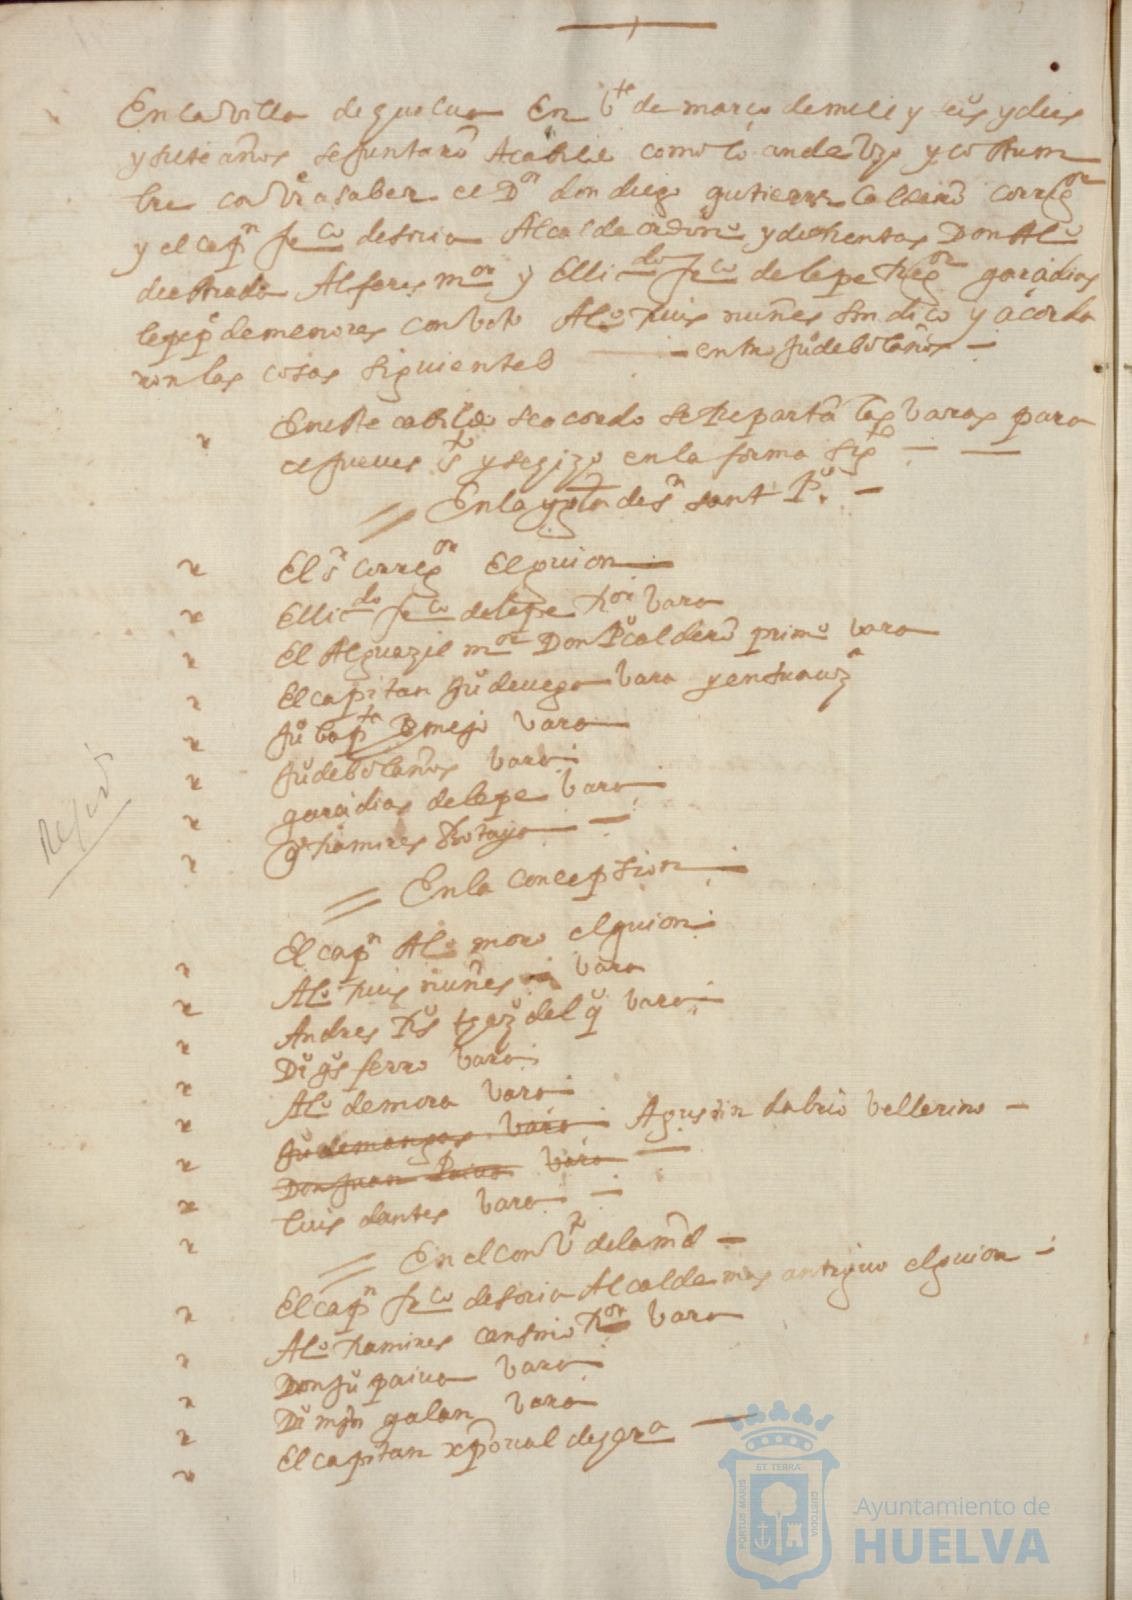 En la villa de guelua En Vte de março de mill y seis y dies
y siete años se juntarõ A cabildo como lo an de Vzo y costum
bre conVia saber el Dor don diego gutierrez calderõ corregor
y el capn frco de soria Alcalde ordinrio y de hentas Don Alo
de estrada Alferes mor y Ellicdo frco de lepe Regor garcidias
lepe de menores con voto Alo Ruis nuñes sindico y acorda
ron las cosas siguientes entro Juo de bolaños
En este cabildo se acordo se Repartã las Varas para
el jueves Sto y se hizo en la forma sigte
En la yglª de sr sant Po
El sr corregor El guion
Ellicdo frco de lepe Ror Vara
El Alguazil mor Don Po calderõ primo Vara
El capitan Juo de uega Vara
Juo bapta Bmejo Vara
Juo de bolaños Vara
garcidias de lepe Vara
go Ramires
En la concepsion
El capn Alo moro el guion
Alo Ruis nuñes Vara
Andres Rs Vara
Do gs ferro Vara
Alo de mora Vara
Juo de mangas Vara Agustin dabrio Vellerino
Don Juan Paiua Vara
Luis dantes Vara
En el conVto de la md
El capn frco de soria Alcalde mas antiguo el guion
Alo Ramires censinio Ror Vara
Don Juo paiua Vara
Do mjn galan Vara
El capitan xpoual
Ayuntamiento de
HUELVA
PORTUS MARIS
ET TERRÆ
CUSTODIA